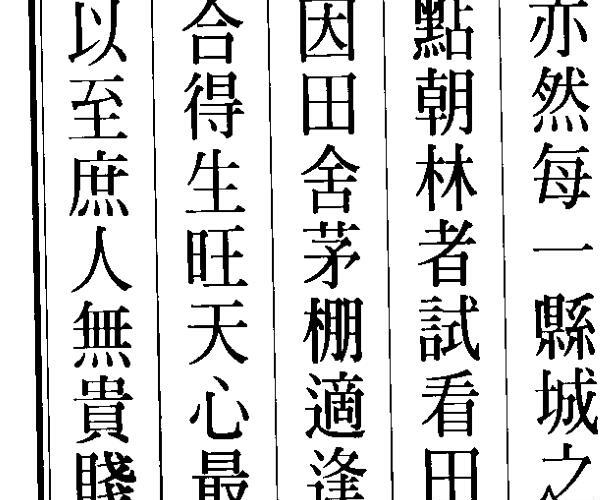 亦然每一縣城之
點朝林者試看田
因田舍茅棚適逢
合得生旺天心最
以至庶人無貴賤